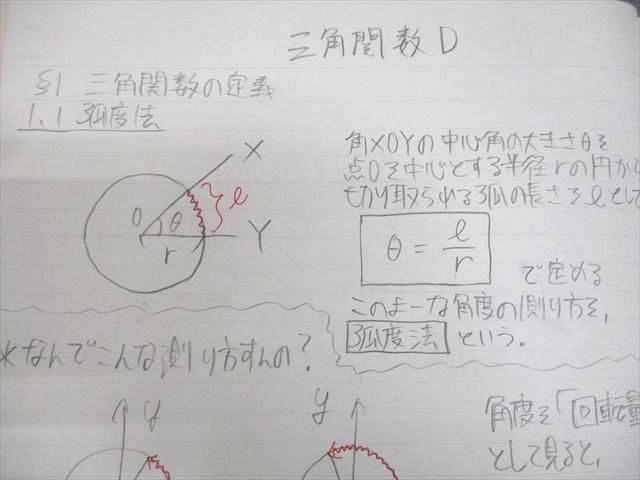 三角関数 D
§1 三角関数の定義
1.1 弧度法
X
O
θ
l
r
Y
角XOYの中心角の大きさθを
点Oを中心とする半径rの円から
切り取られる弧の長さをlとして
θ = l/r
で定める
このような角度の測り方を,
弧度法 という。
*なんでこんな測り方すんの?
y
y
角度を「回転量
として見ると,